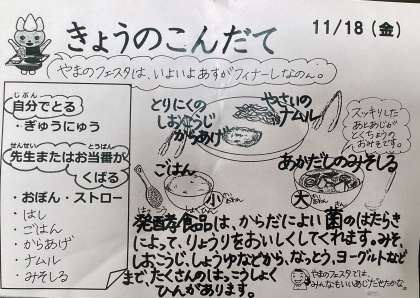 きょうのこんだて
11/18（金）
やまのフェスタは、いよいよあすがフィナーレなのん。
自分でとる
じぶん
・ぎゅうにゅう
先生またはお当番が
せんせい とうばん
くばる
・おぼん・ストロー
・はし
・ごはん
・からあげ
・ナムル
・みそしる
とりにくの
しおこうじ
からあげ
やさいの
ナムル
スッキリした
あとあじが
とくちょうの
おみそです。
ごはん
小
あかだしのみそしる
大
発酵食品は、からだによい菌のはたらき
によって、りょうりをおいしくしてくれます。みそ、
しおこうじ、しょうゆなどから、なっとう、ヨーグルトなど
まで、たくさんのはっこうしょく
ひんがあります。
やまのフェスタでは、
みんなもいいあじだせたかな。